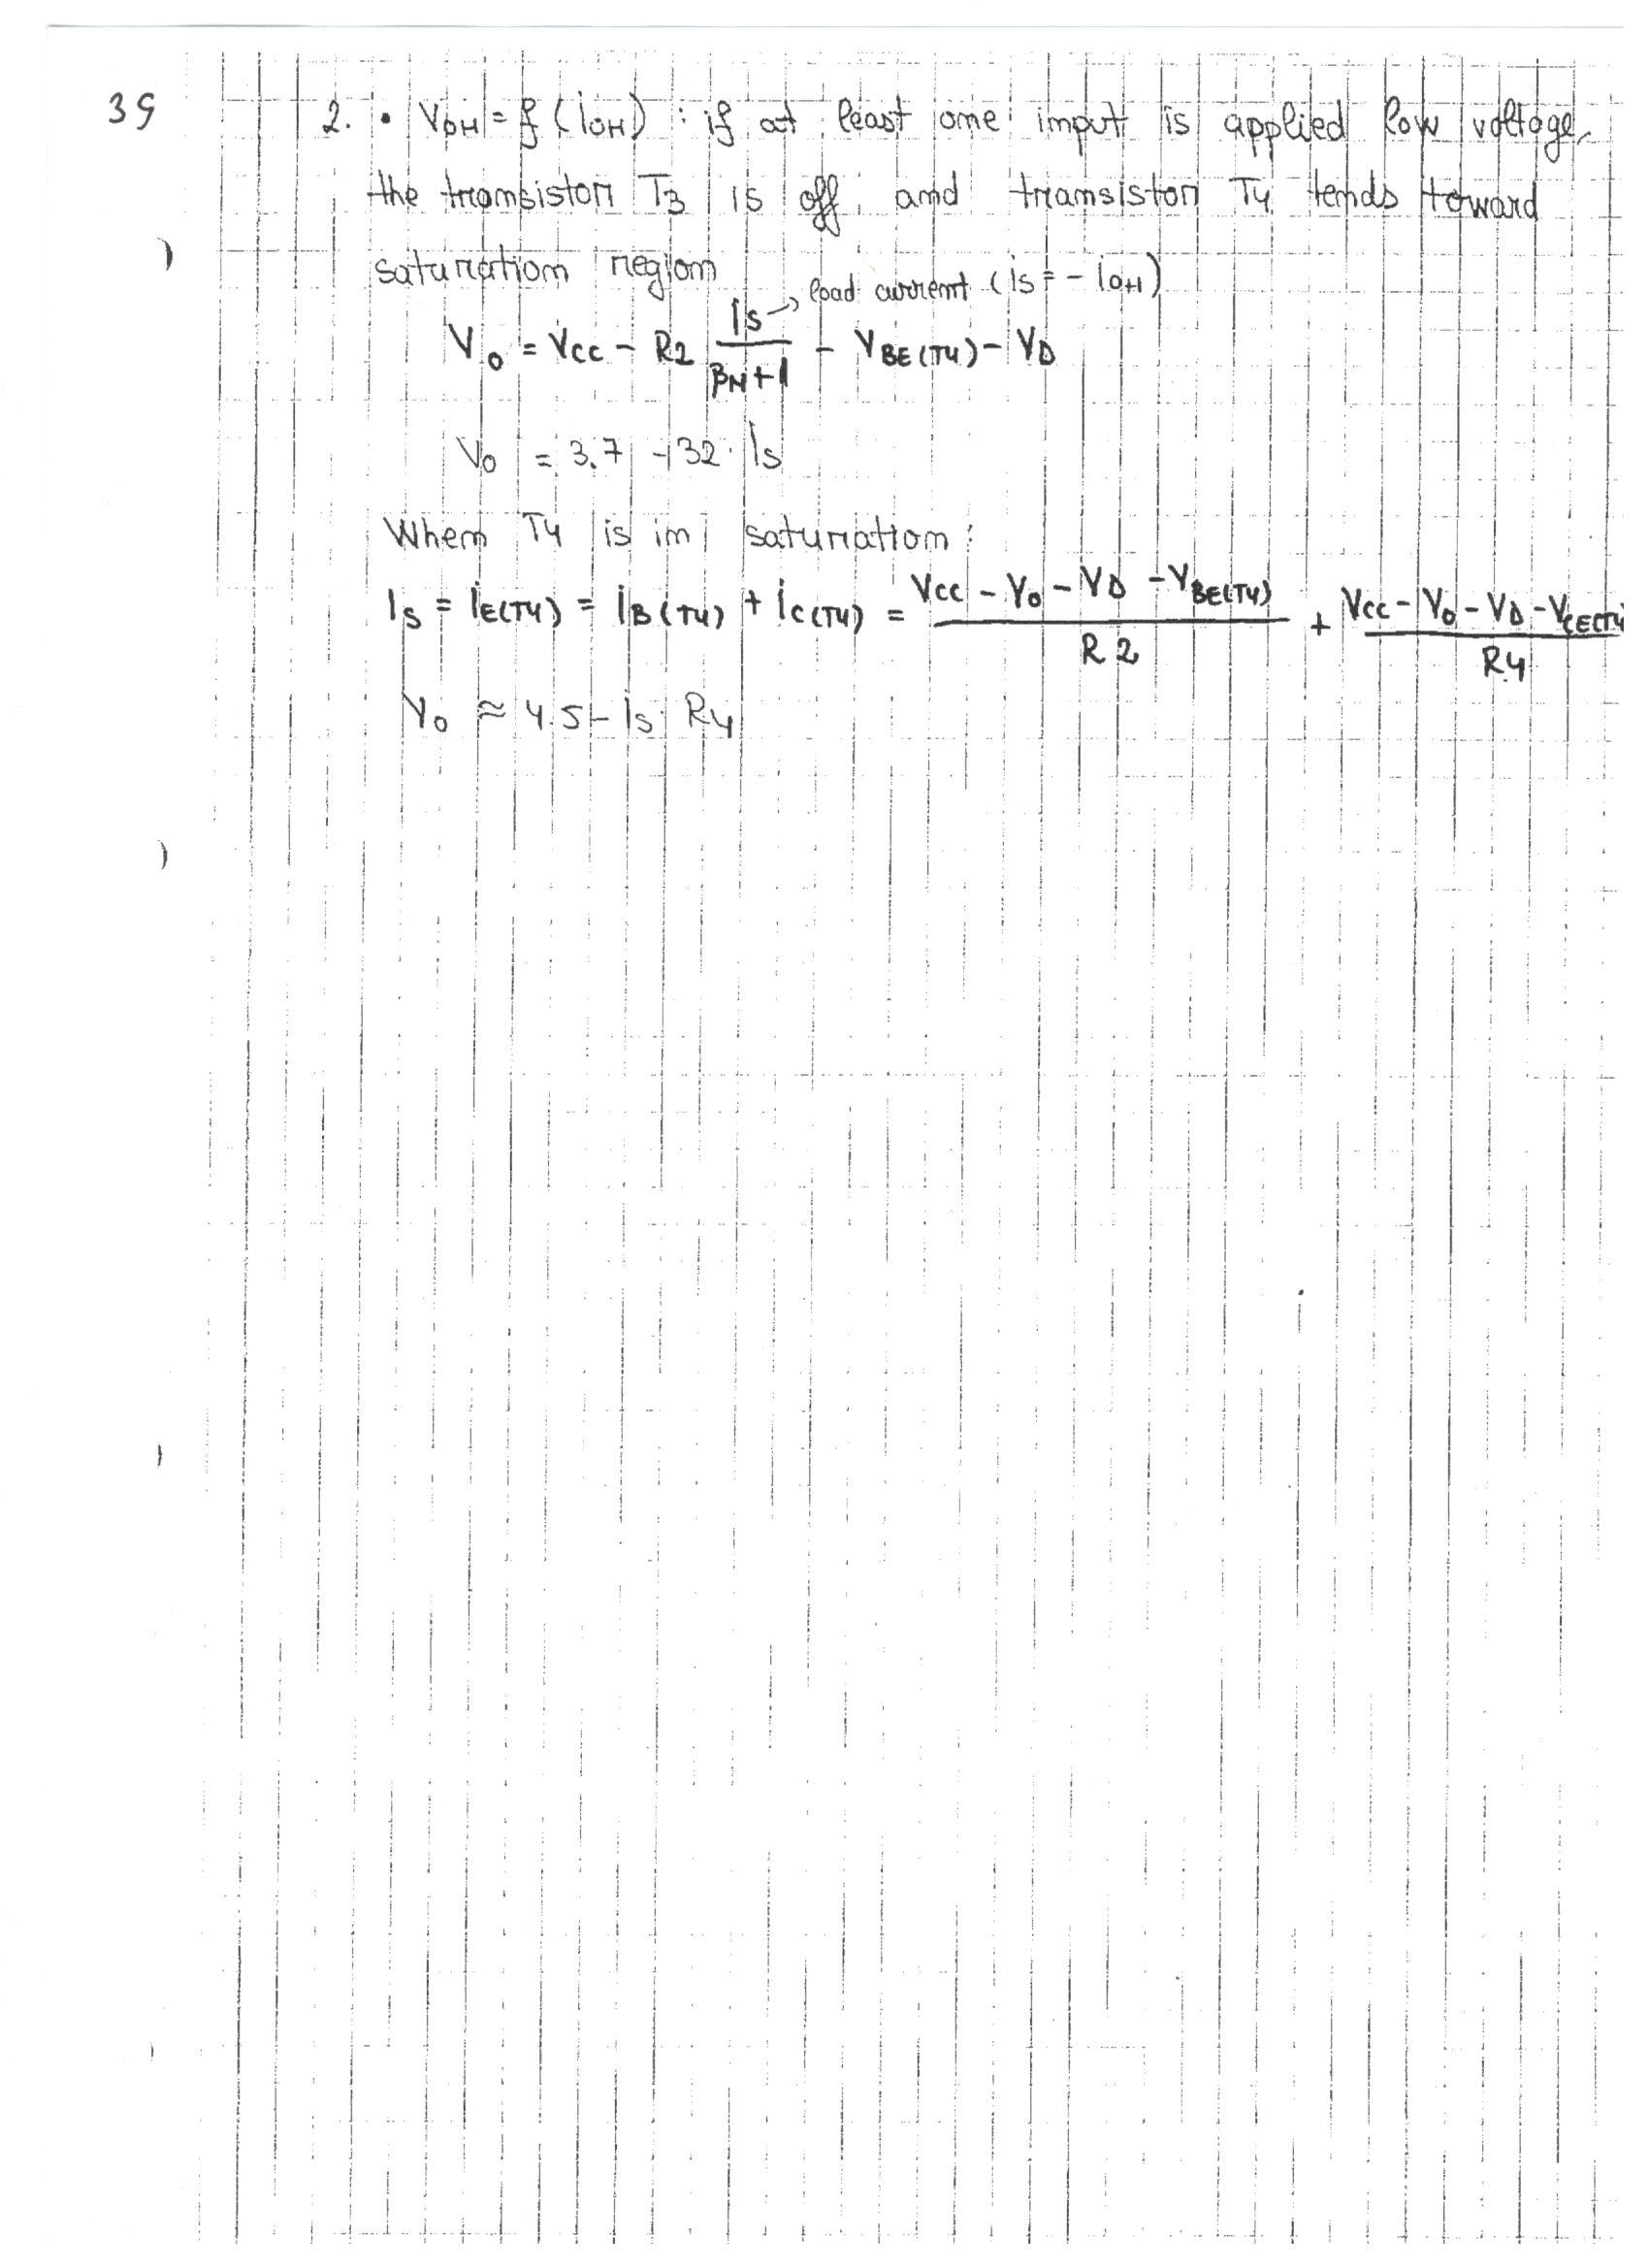 39
2. • VOH = f (IOH) : if at least one input is applied low voltage,
the transistor T3 is off and transistor T4 tends toward
saturation region
load current (Is = - IOH)
Vo = Vcc - R2 Is / (βN+1) - VBE(T4) - VD
Vo = 3.7 - 32 · Is
When T4 is in saturation:
Is = IE(T4) = IB(T4) + IC(T4) = (Vcc - Vo - VD - VBE(T4)) / R2 + (Vcc - Vo - VD - VCE(T4 / R4
Vo ≈ 4.5 - Is · R4